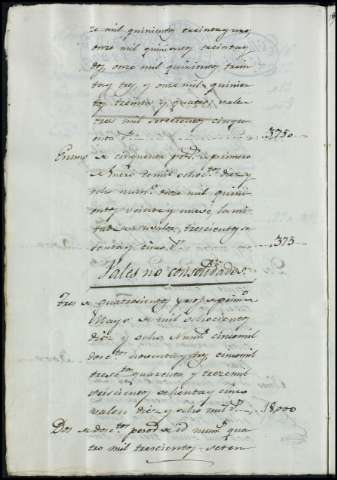 ze mil quinientos treinta y uno,
once mil quinientos treinta y
dos, once mil quinientos trein
ta y tres, y once mil quinien
tos treinta y quatro, valen
tres mil setecientos cinquen
ta 3750
de cinquenta pesos de primero
de Enero de mil ochos.tos diez y
ocho num.o once mil quini
entos veinte y nueve la mi
tad su valor, trescientos se
tenta y cinco 375
Vales no consolidados
Tres de quatrocientos pesos primero
Mayo de mil ochocientos
diez y ocho num.s cinco mil
dosc.tos noventa y dos, cinco mil
tresc.tos quarenta y trece mil
seiscientos setenta y cinco
valen diez y ocho mil 18,000
Dos de dosc.tos pesos de id num.s qua
tro mil trescientos seten